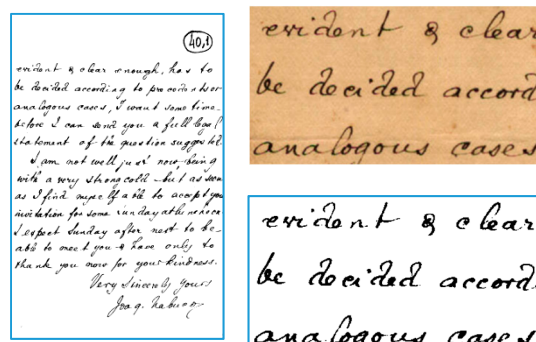 40,1
evident & clear enough, has to
be decided according to precedents or
analogous cases, I want some time
before I can send you a full legal
statement of the question suggested.
I am not well just now, being
with a very strong cold - but as soon
as I find myself able to accept your
invitation for some sunday athenaeum
I expect Sunday after next to be
able to meet you & have only to
thank you now for your kindness.
Very Sincerely yours
evident & clear
be decided accord
analogous cases
evident & clear
be decided accord
analogous cases